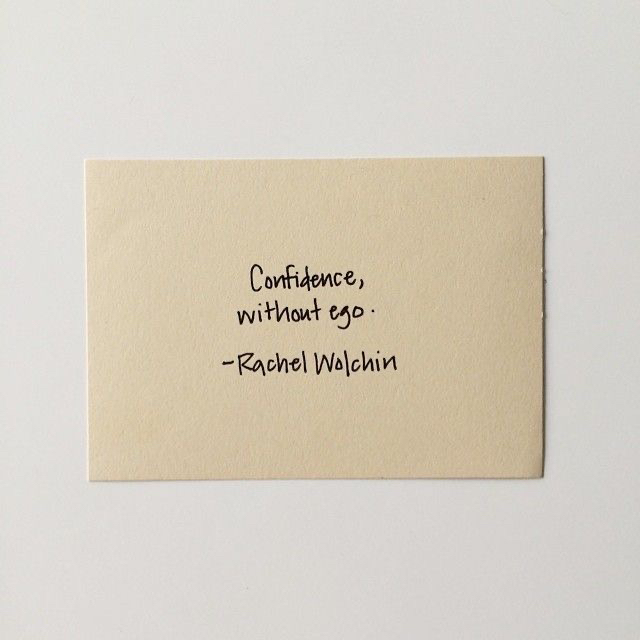 Confidence,
without ego.
-Rachel Wolchin